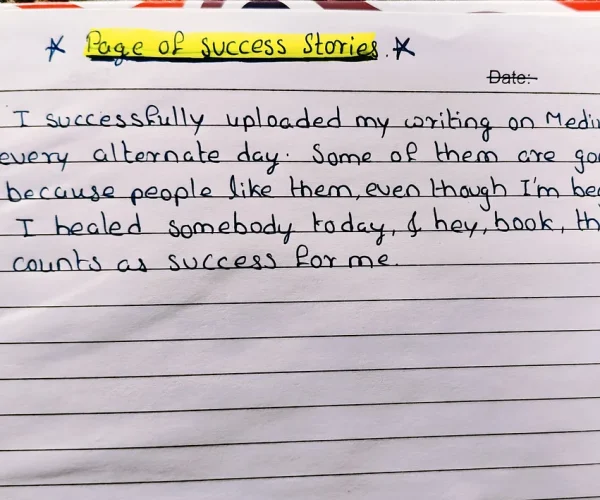 * Page of success Stories. *
Date:-
I successfully uploaded my writing on
every alternate day. Some of them are
because people like them, even though I'm
I healed somebody today, & hey, book,
counts as success for me.